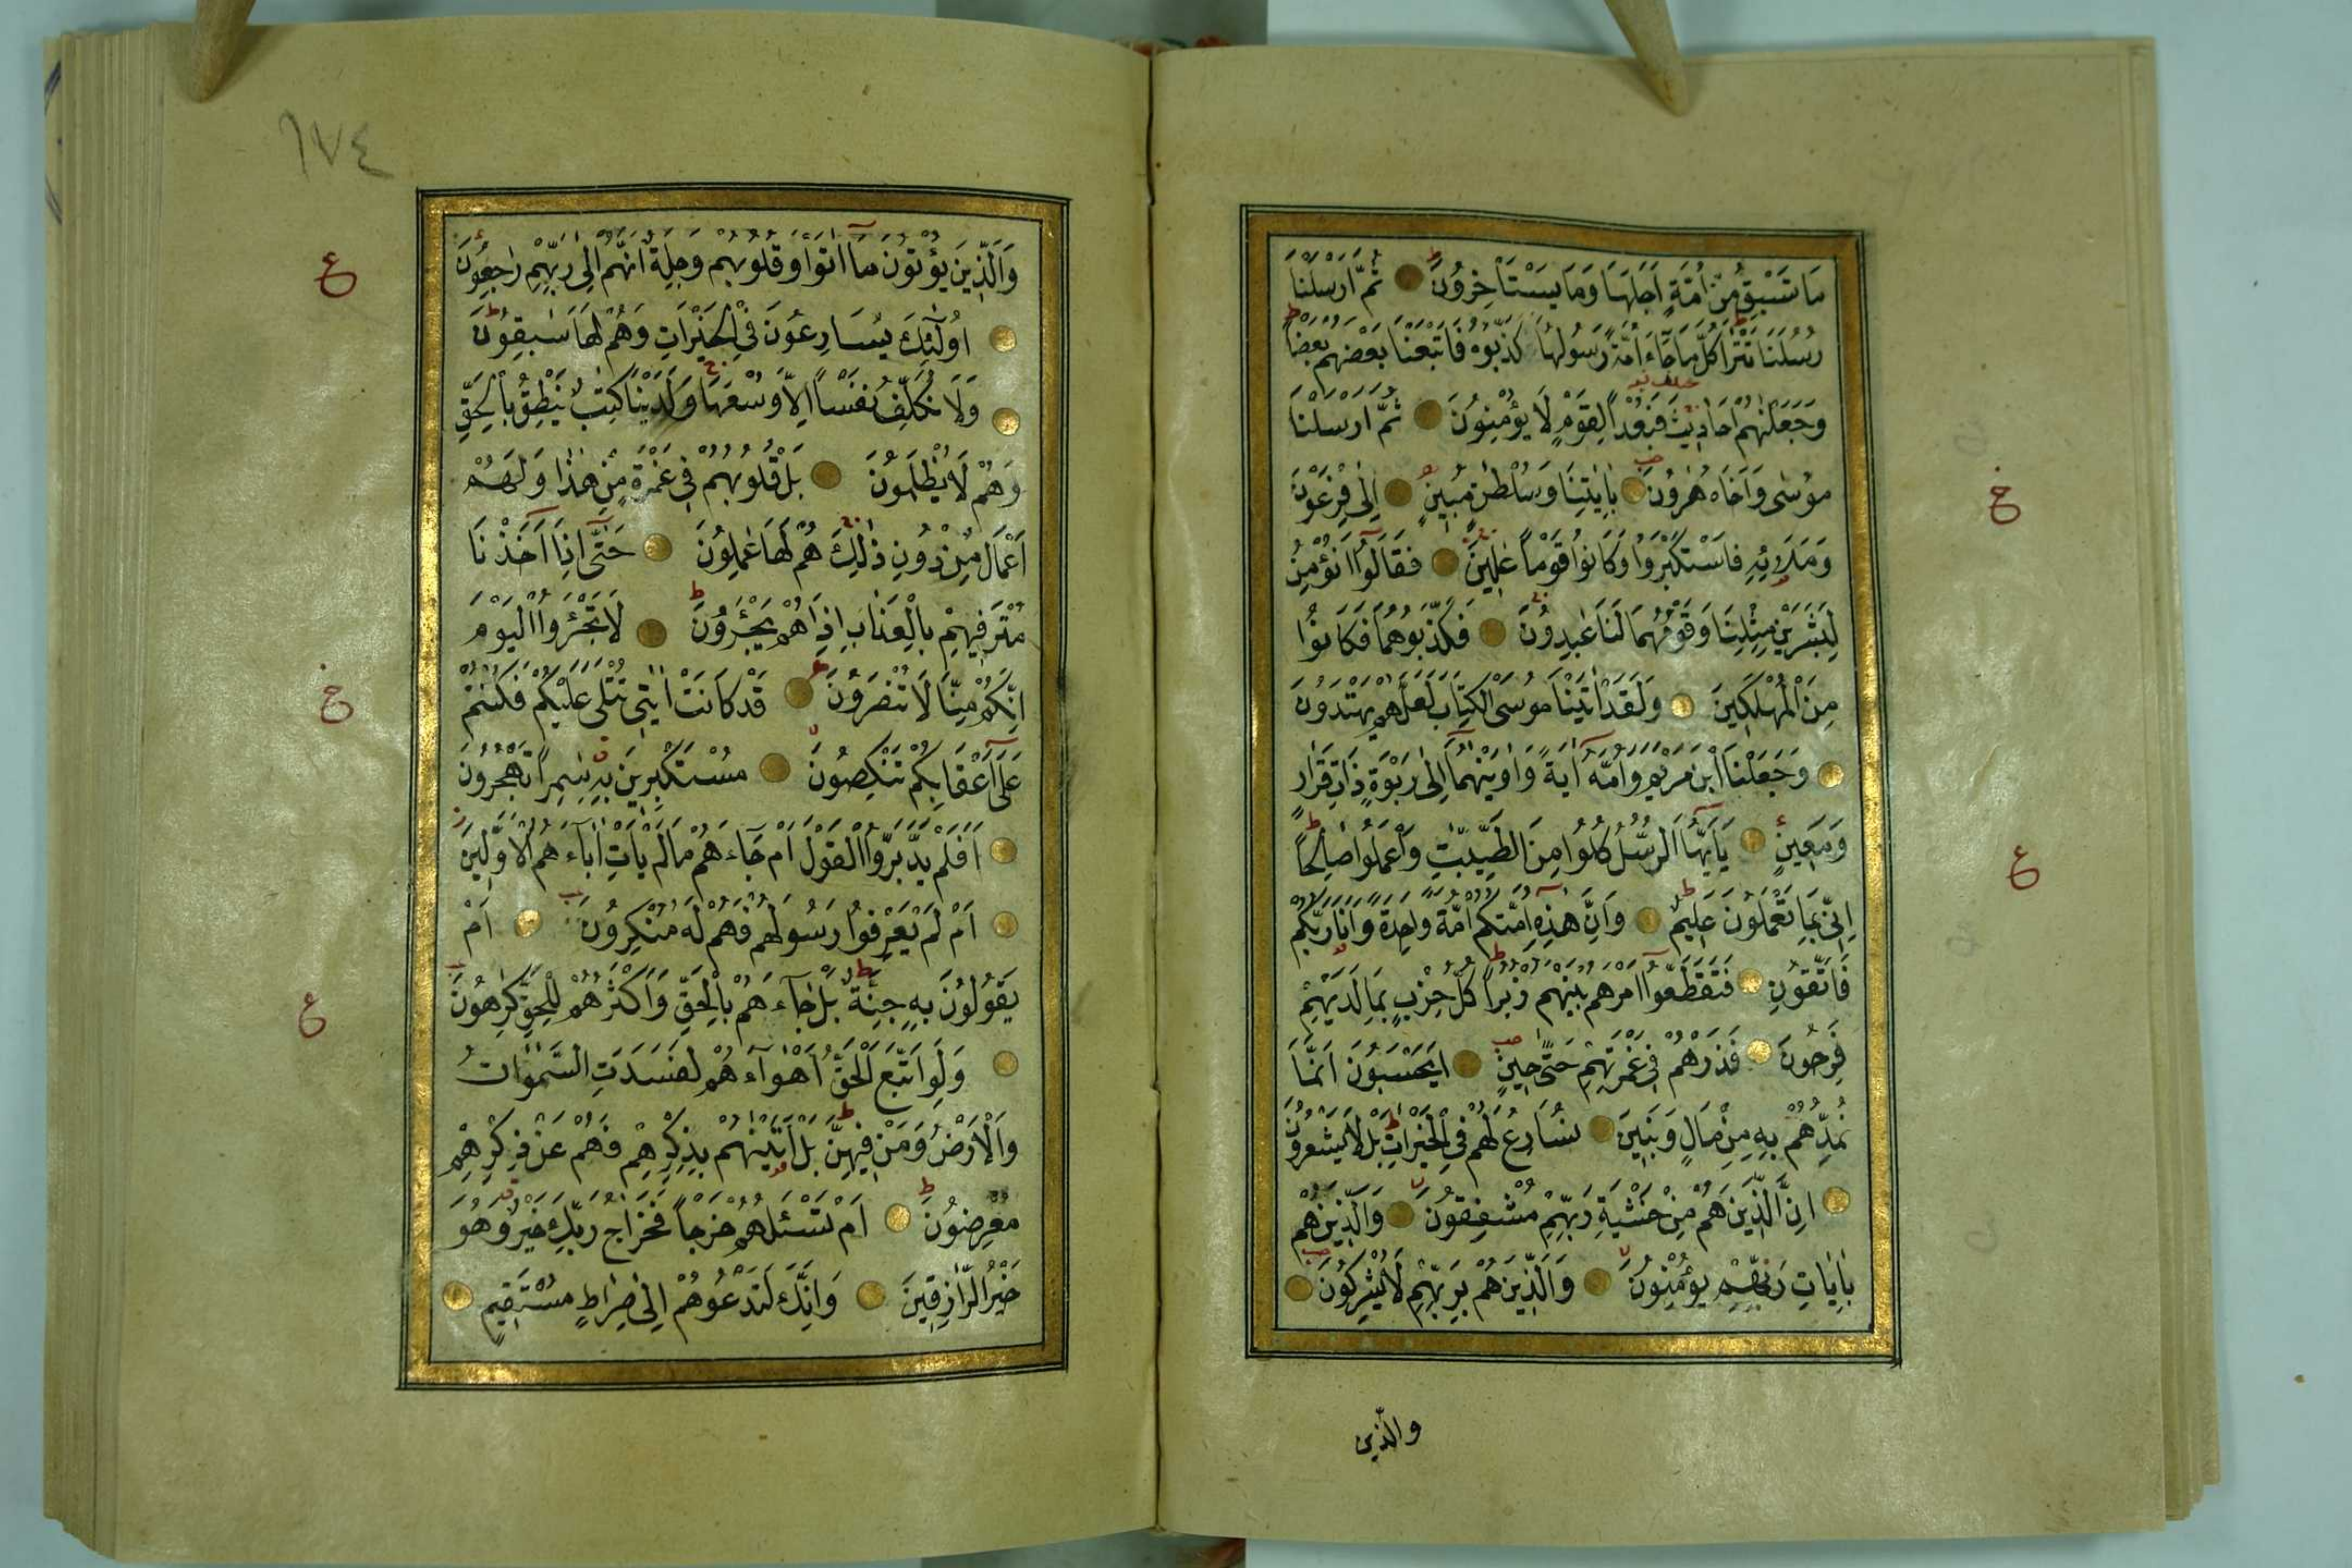 مَا تَسْبِقُ مِنْ اُمَّةٍ اَجَلَهَا وَمَا يَسْتَأْخِرُونَ ثُمَّ اَرْسَلْنَا
رُسُلَنَا تَتْرَا كُلَّ مَا جَٓاءَ اُمَّةً رَسُولُهَا كَذَّبُوهُ فَاَتْبَعْنَا بَعْضَهُمْ بَعْضًا
وَجَعَلْنٰهُمْ اَحَادِيثَ فَبُعْدًا لِقَوْمٍ لَا يُؤْمِنُونَ ثُمَّ اَرْسَلْنَا
مُوسٰى وَاَخَاهُ هٰرُونَ بِاٰيٰتِنَا وَسُلْطٰنٍ مُبِينٍ اِلٰى فِرْعَوْنَ
وَمَلَا۬ئِهِ فَاسْتَكْبَرُوا وَكَانُوا قَوْمًا عٰلِينَ فَقَالُٓوا اَنُؤْمِنُ
لِبَشَرَيْنِ مِثْلِنَا وَقَوْمُهُمَا لَنَا عٰبِدُونَ فَكَذَّبُوهُمَا فَكَانُوا
مِنَ الْمُهْلَكِينَ وَلَقَدْ اٰتَيْنَا مُوسَى الْكِتَابَ لَعَلَّهُمْ يَهْتَدُونَ
وَجَعَلْنَا ابْنَ مَرْيَمَ وَاُمَّهُٓ اٰيَةً وَاٰوَيْنٰهُمَٓا اِلٰى رَبْوَةٍ ذَاتِ قَرَارٍ
وَمَعِينٍ يَٓا اَيُّهَا الرُّسُلُ كُلُوا مِنَ الطَّيِّبٰتِ وَاعْمَلُوا صَالِحًا
اِنِّى بِمَا تَعْمَلُونَ عَلِيمٌ وَاَنَّ هٰذِهِ اُمَّتُكُمْ اُمَّةً وَاحِدَةً وَاَنَا رَبُّكُمْ
فَاتَّقُونِ فَتَقَطَّعُٓوا اَمْرَهُمْ بَيْنَهُمْ زُبُرًا كُلُّ حِزْبٍ بِمَا لَدَيْهِمْ
فَرِحُونَ فَذَرْهُمْ فِى غَمْرَتِهِمْ حَتّٰى حِينٍ اَيَحْسَبُونَ اَنَّمَا
نُمِدُّهُمْ بِهِ مِنْ مَالٍ وَبَنِينَ نُسَارِعُ لَهُمْ فِى الْخَيْرَاتِ بَلْ لَا يَشْعُرُونَ
اِنَّ الَّذِينَ هُمْ مِنْ خَشْيَةِ رَبِّهِمْ مُشْفِقُونَ وَالَّذِينَ هُمْ
بِاٰيَاتِ رَبِّهِمْ يُؤْمِنُونَ وَالَّذِينَ هُمْ بِرَبِّهِمْ لَا يُشْرِكُونَ
والّذين
خ
ع
١٧٤
وَالَّذِينَ يُؤْتُونَ مَٓا اٰتَوْا وَقُلُوبُهُمْ وَجِلَةٌ اَنَّهُمْ اِلٰى رَبِّهِمْ رٰجِعُونَ
اُولٰٓئِكَ يُسَارِعُونَ فِى الْخَيْرَاتِ وَهُمْ لَهَا سٰبِقُونَ
وَلَا نُكَلِّفُ نَفْسًا اِلَّا وُسْعَهَا وَلَدَيْنَا كِتٰبٌ يَنْطِقُ بِالْحَقِّ
وَهُمْ لَا يُظْلَمُونَ بَلْ قُلُوبُهُمْ فِى غَمْرَةٍ مِنْ هٰذَا وَلَهُمْ
اَعْمَالٌ مِنْ دُونِ ذٰلِكَ هُمْ لَهَا عٰمِلُونَ حَتّٰٓى اِذَٓا اَخَذْنَا
مُتْرَفِيهِمْ بِالْعَذَابِ اِذَا هُمْ يَجْـَٔرُونَ لَا تَجْـَٔرُوا الْيَوْمَ
اِنَّكُمْ مِنَّا لَا تُنْصَرُونَ قَدْ كَانَتْ اٰيٰتِى تُتْلٰى عَلَيْكُمْ فَكُنْتُمْ
عَلٰٓى اَعْقَابِكُمْ تَنْكِصُونَ مُسْتَكْبِرِينَ بِهِ سٰمِرًا تَهْجُرُونَ
اَفَلَمْ يَدَّبَّرُوا الْقَوْلَ اَمْ جَٓاءَهُمْ مَا لَمْ يَأْتِ اٰبَٓاءَهُمُ الْاَوَّلِينَ
اَمْ لَمْ يَعْرِفُوا رَسُولَهُمْ فَهُمْ لَهُ مُنْكِرُونَ اَمْ
يَقُولُونَ بِهِ جِنَّةٌ بَلْ جَٓاءَهُمْ بِالْحَقِّ وَاَكْثَرُهُمْ لِلْحَقِّ كٰرِهُونَ
وَلَوِ اتَّبَعَ الْحَقُّ اَهْوَٓاءَهُمْ لَفَسَدَتِ السَّمٰوَاتُ
وَالْاَرْضُ وَمَنْ فِيهِنَّ بَلْ اَتَيْنٰهُمْ بِذِكْرِهِمْ فَهُمْ عَنْ ذِكْرِهِمْ
مُعْرِضُونَ اَمْ تَسْـَٔلُهُمْ خَرْجًا فَخَرَاجُ رَبِّكَ خَيْرٌ وَهُوَ
خَيْرُ الرَّازِقِينَ وَاِنَّكَ لَتَدْعُوهُمْ اِلٰى صِرَاطٍ مُسْتَقِيمٍ
ع
خ
ع